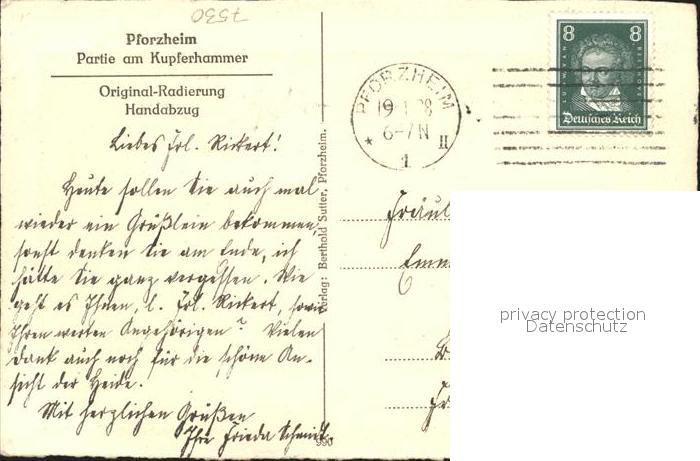 7530
Pforzheim
Partie am Kupferhammer
Original-Radierung
Handabzug
PFORZHEIM
19 1 28
6-7 N
* II
1
8 8
LUDWIG VAN BEETHOVEN
Deutsches Reich
Liebes Frl. Rickert!
Heute sollen Sie auch mal
wieder ein Grüßlein bekommen,
sonst denken Sie am Ende, ich
hätte Sie ganz vergessen. Wie
geht es Ihnen, l. Frl. Rickert, sowie
Ihren werten Angehörigen? Vielen
Dank auch noch für die schöne An-
sicht der Heide.
Mit herzlichen Grüßen
Ihre Frieda Schmidt.
Verlag: Berthold Sutter, Pforzheim.
990
Fräul
Emm
privacy protection
Datenschutz